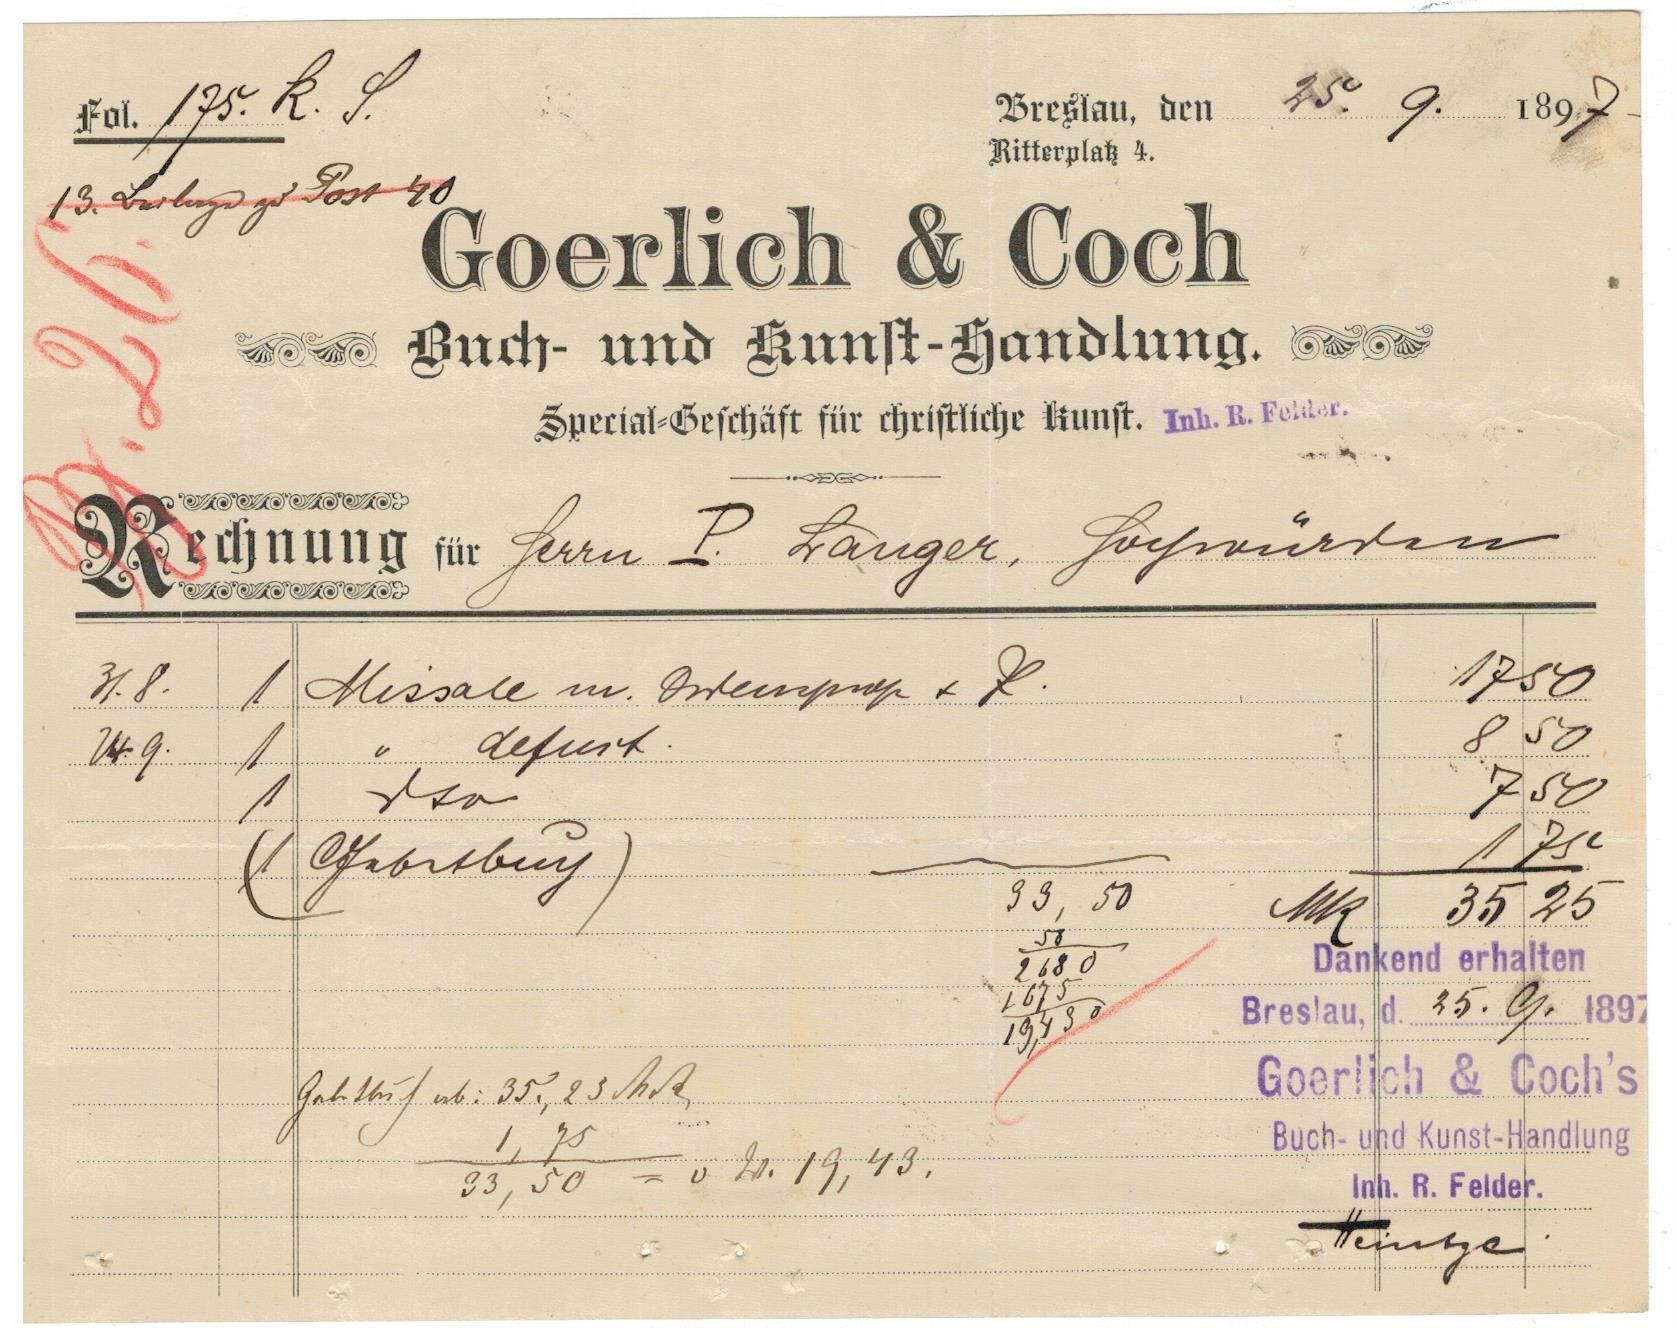 Fol. 175. K. S.
Breslau, den 25. 9. 1897
Ritterplatz 4.
13. Beilage zu Post 40
Goerlich & Coch
Buch- und Kunst-Handlung.
Special-Geschäft für christliche Kunst. Inh. R. Felder.
Rechnung für Herrn P. Langer, Hochwürden
31. 8. 1 Missale m. + 17 50
9. 1 " defunct. 8 50
1 dto 7 50
(1 Gebetbuch) 1 75
33, 50
Mk 35 25
58
2680
1675
19,430
Dankend erhalten
Breslau, d. 25. 9. 1897
Goerlich & Coch's
Buch- und Kunst-Handlung
Inh. R. Felder.
Heintze.
Gebetbuch ab: 35, 25 Mk
1, 75
33, 50 = ö. W. 19, 43.
26.